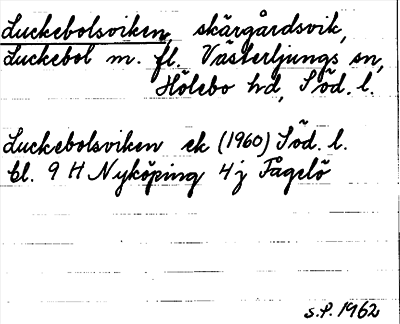 Luckebolsviken, skärgårdsvik,
Luckebol m. fl. Västerljungs sn,
Hölebo hd, Söd. l.
Luckebolsviken ek (1960) Söd. l.
bl. 9 H Nyköping 4 j Fågelö
S.P. 1962